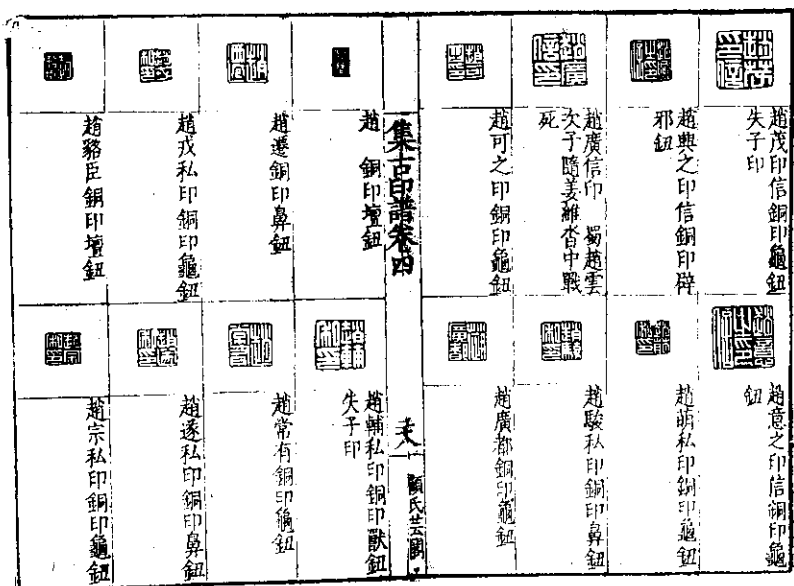 趙茂印信銅印龜鈕
失子印
趙興之印信銅印辟
邪鈕
趙廣信印 蜀趙雲
次子隨姜維沓中戰
死
趙可之印銅印龜鈕
趙意之印信銅印龜
鈕
趙萌私印銅印龜鈕
趙駿私印銅印鼻鈕
趙廣都銅印龜鈕
集古印譜卷四
顧氏芸閣
趙 銅印壇鈕
趙遷銅印鼻鈕
趙戎私印銅印龜鈕
趙豁臣銅印壇鈕
趙輔私印銅印獸鈕
失子印
趙常有銅印龜鈕
趙遂私印銅印鼻鈕
趙宗私印銅印龜鈕